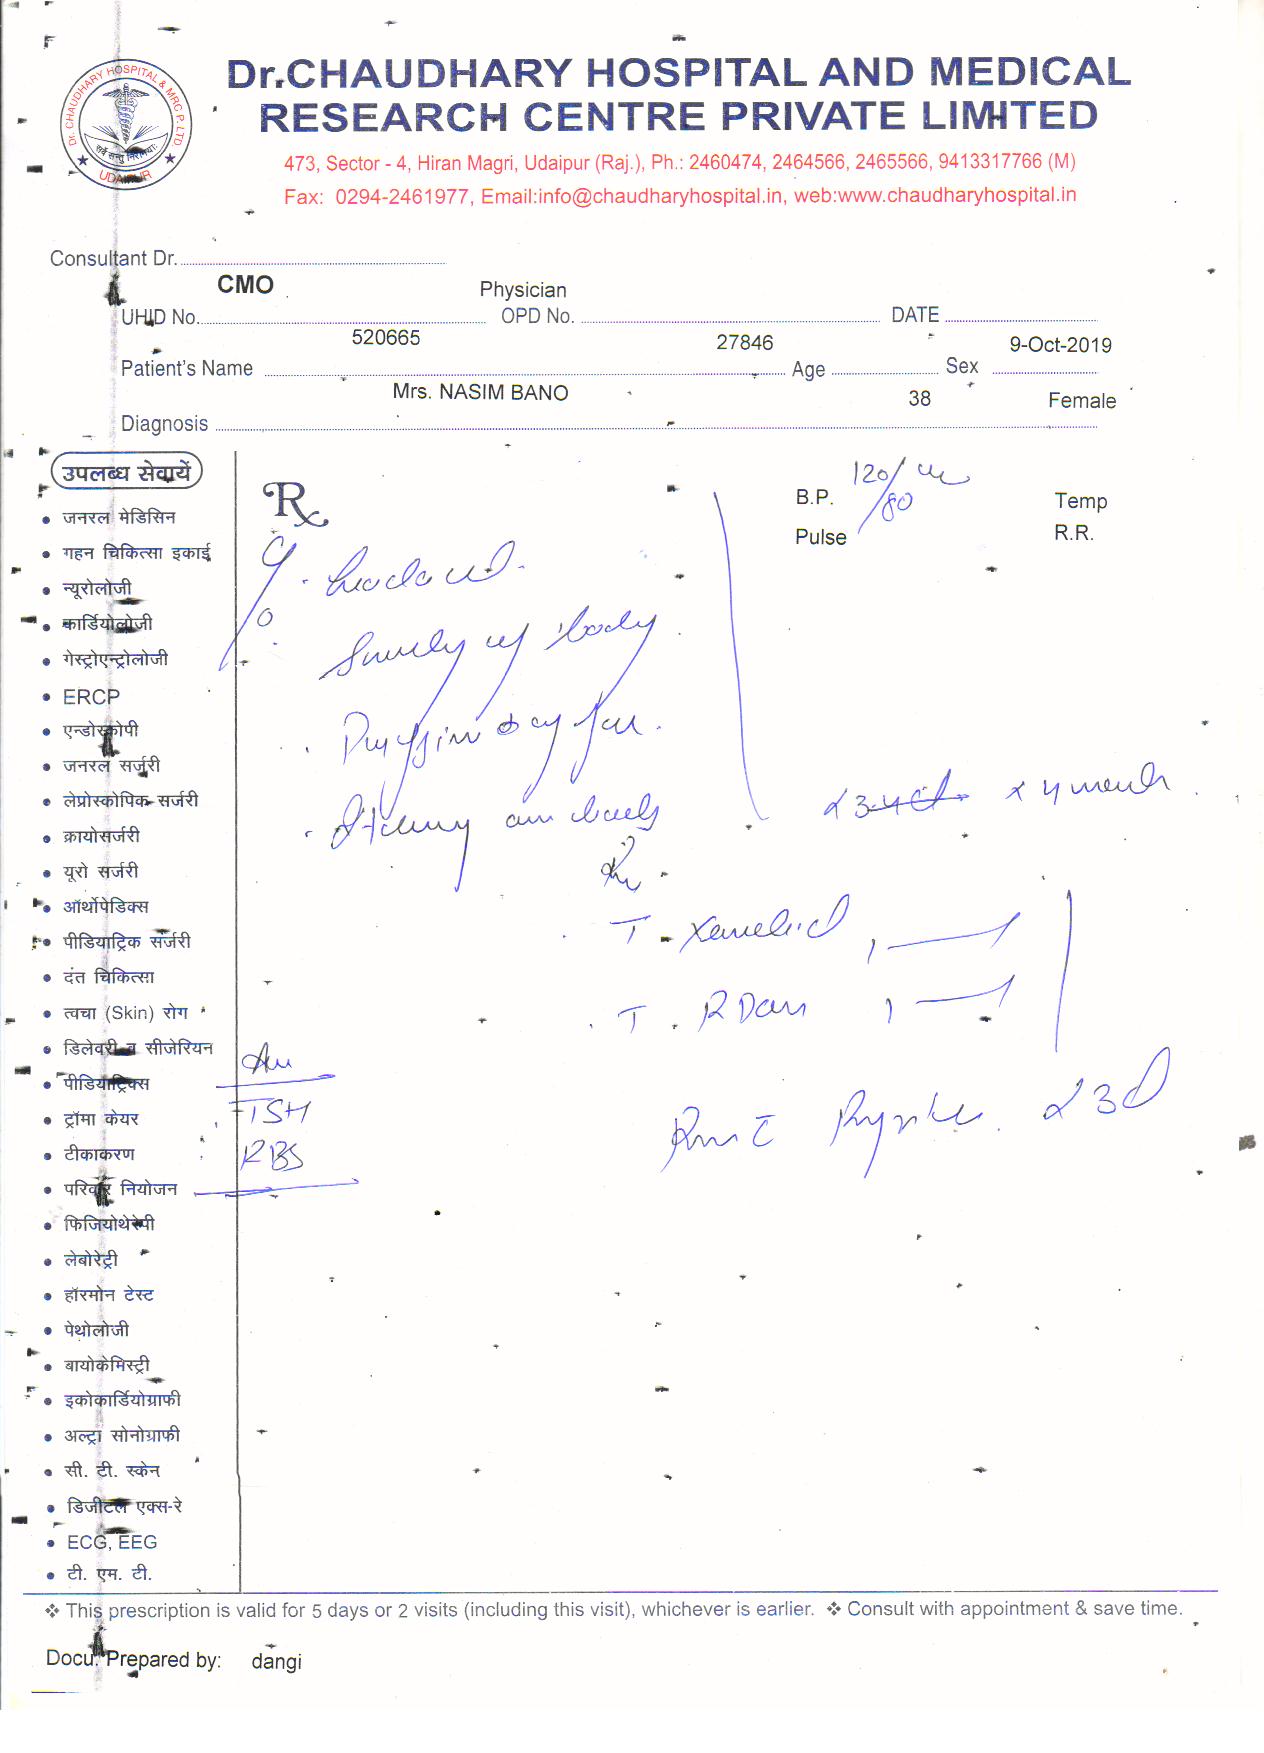 Dr. CHAUDHARY HOSPITAL & MRC P. LTD.
सर्वे सन्तु निरामयाः
UDAIPUR
Dr.CHAUDHARY HOSPITAL AND MEDICAL
RESEARCH CENTRE PRIVATE LIMITED
473, Sector - 4, Hiran Magri, Udaipur (Raj.), Ph.: 2460474, 2464566, 2465566, 9413317766 (M)
Fax: 0294-2461977, Email:info@chaudharyhospital.in, web:www.chaudharyhospital.in
Consultant Dr.
CMO Physician
UHID No. OPD No. DATE
520665 27846 9-Oct-2019
Patient's Name Age Sex
Mrs. NASIM BANO 38 Female
Diagnosis
उपलब्ध सेवायें
जनरल मेडिसिन
गहन चिकित्सा इकाई
न्यूरोलोजी
कार्डियोलोजी
गेस्ट्रोएन्ट्रोलोजी
ERCP
एन्डोस्कोपी
जनरल सर्जरी
लेप्रोस्कोपिक सर्जरी
क्रायोसर्जरी
यूरो सर्जरी
ऑर्थोपेडिक्स
पीडियाट्रिक सर्जरी
दंत चिकित्सा
त्वचा (Skin) रोग
डिलेवरी व सीजेरियन
पीडियाट्रिक्स
ट्रॉमा केयर
टीकाकरण
परिवार नियोजन
फिजियोथेरेपी
लेबोरेट्री
हॉरमोन टेस्ट
पेथोलोजी
बायोकेमिस्ट्री
इकोकार्डियोग्राफी
अल्ट्रा सोनोग्राफी
सी. टी. स्केन
डिजीटल एक्स-रे
ECG, EEG
टी. एम. टी.
Rx
120/80
B.P. Temp
Pulse R.R.
C/o
of body
x 4 month
T.
T.
TSH
RBS
❖ This prescription is valid for 5 days or 2 visits (including this visit), whichever is earlier. ❖ Consult with appointment & save time.
Docu. Prepared by: dangi